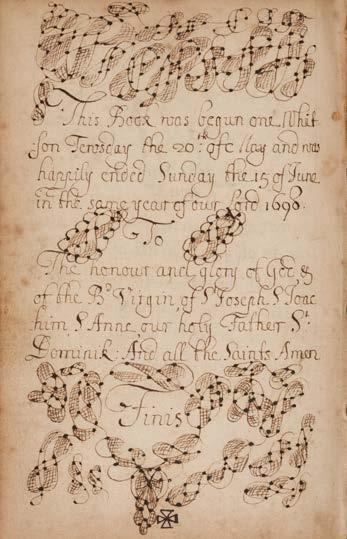 This Book was begun one Whit
son Tewsday the 20th of May and was
happily ended Sunday the 15 of June
in the same year of our lord 1698.
To
The honour and glory of God &
of the Bd Virgin, of St Joseph St Joac
him, St Anne our holy Father St
Dominik: And all the Saints Amen
Finis